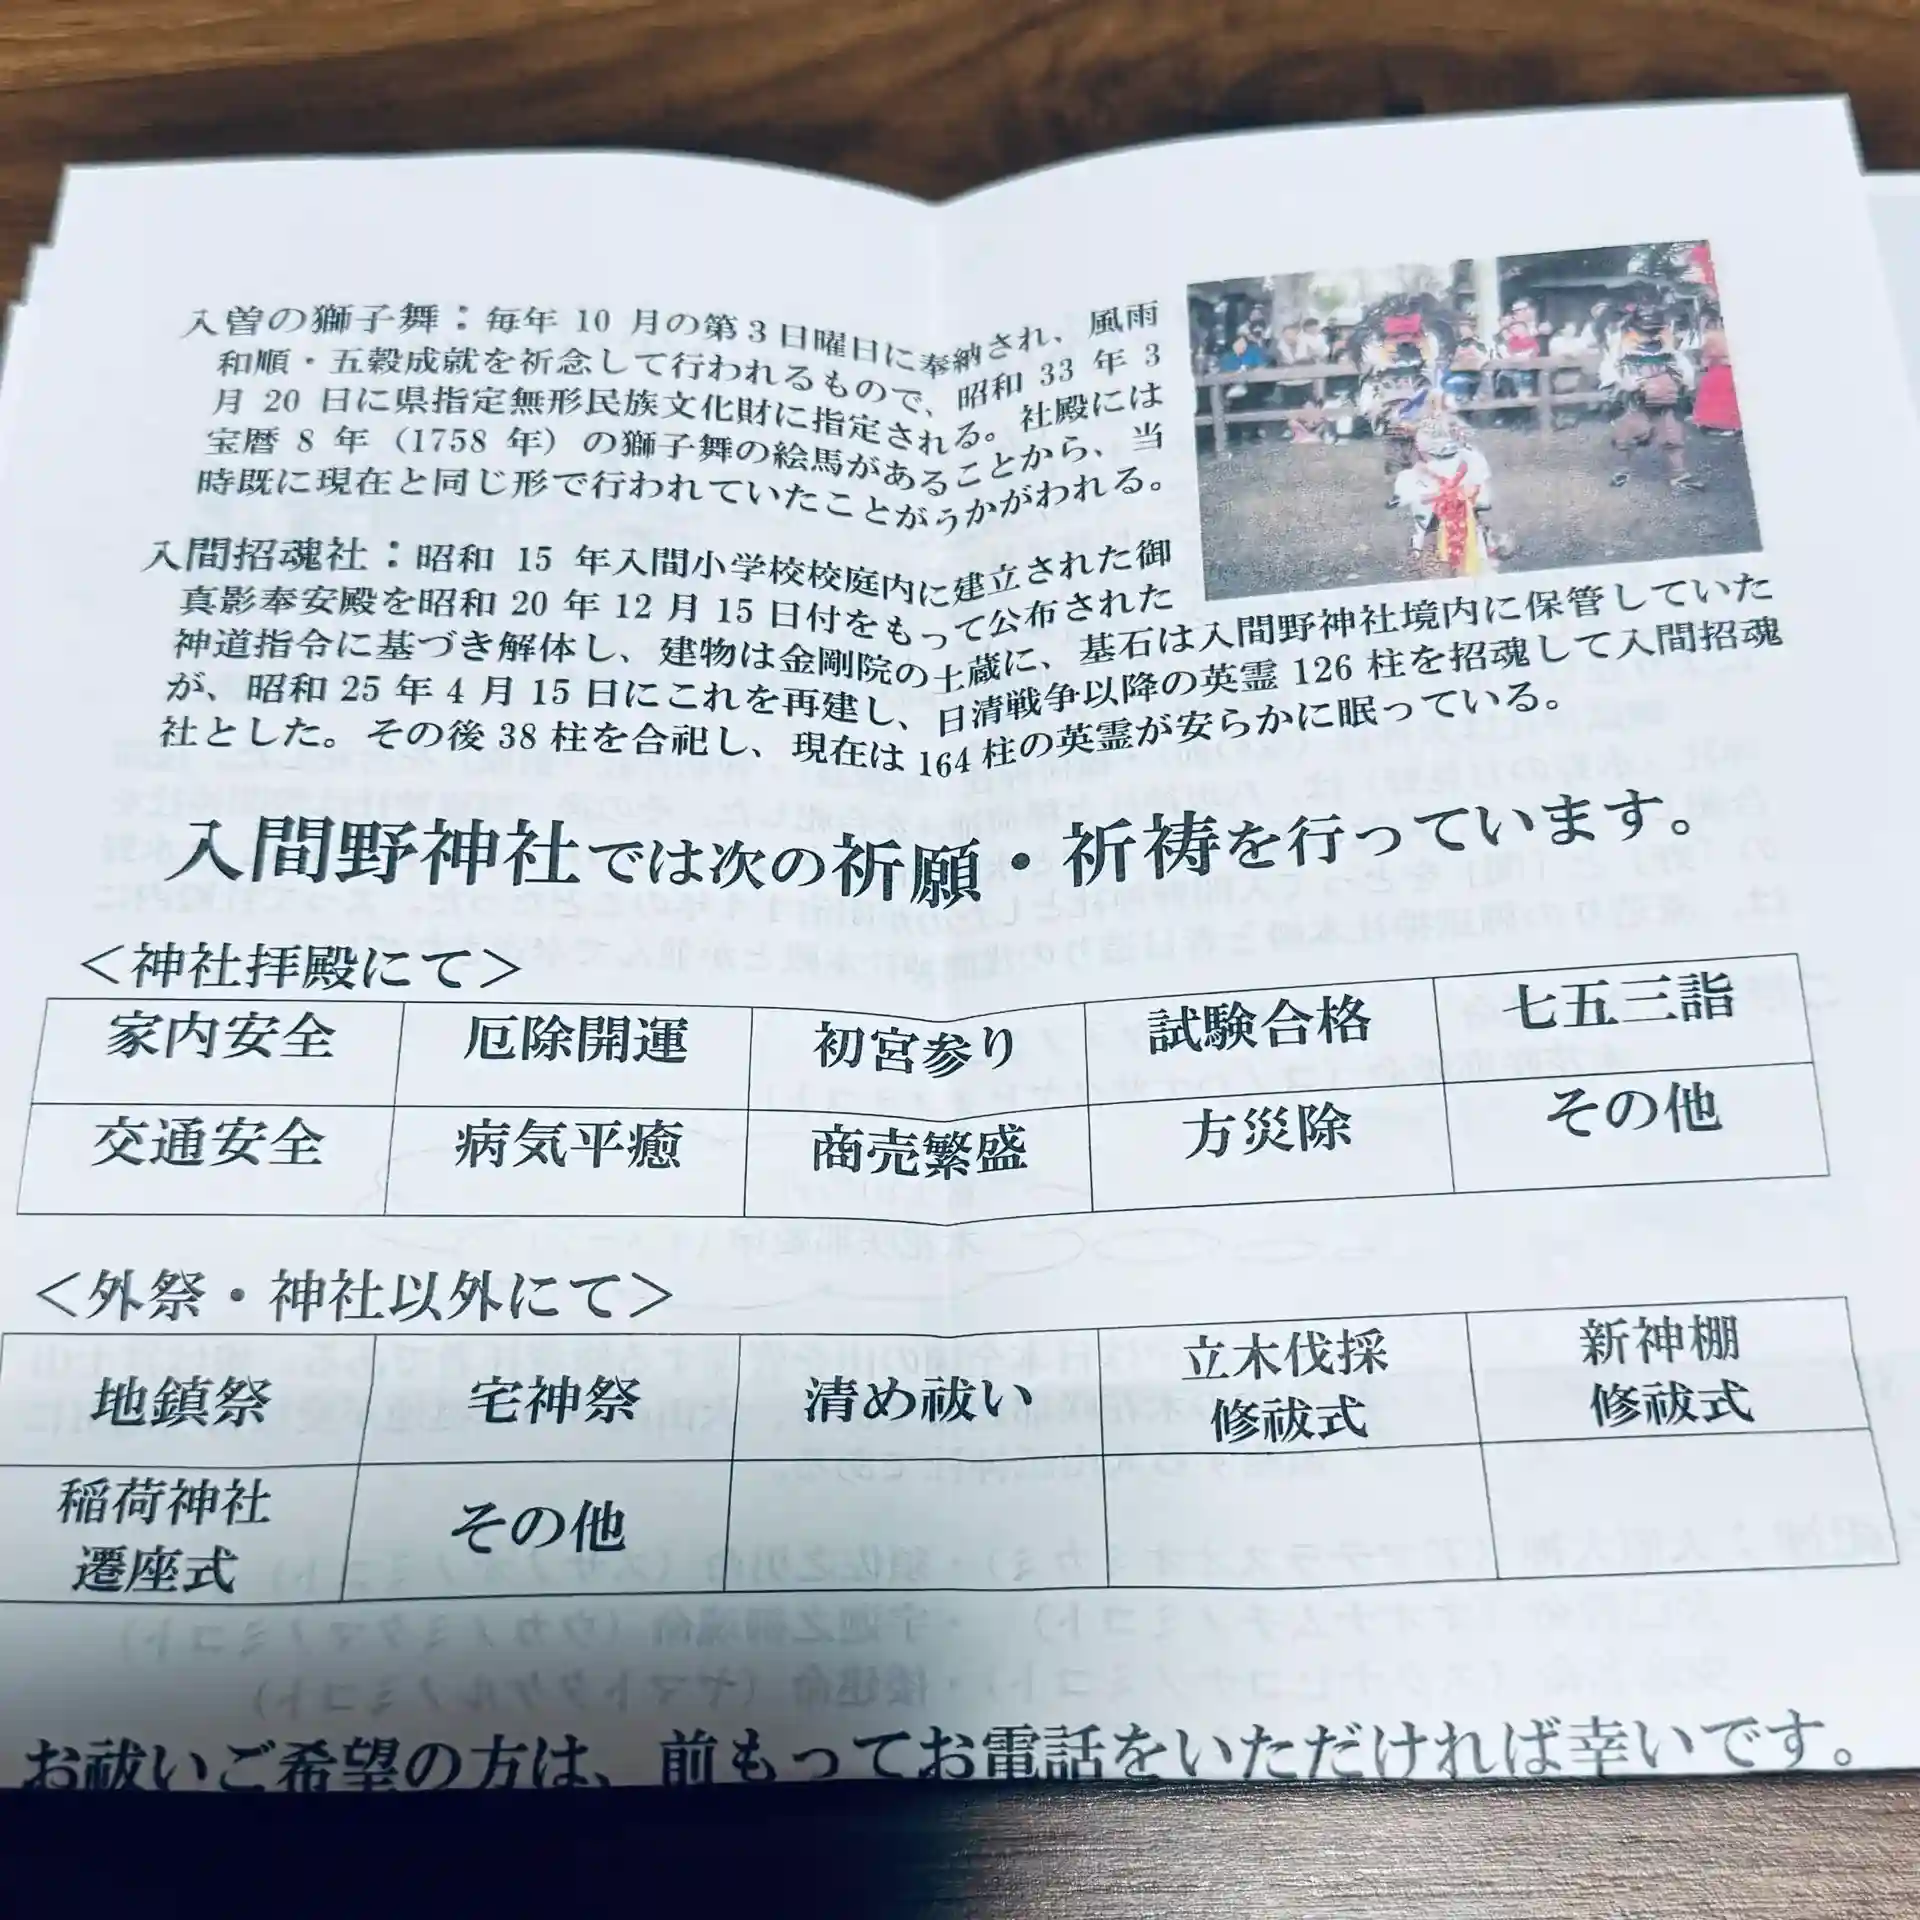 入曽の獅子舞：毎年 10 月の第 3 日曜日に奉納され、風雨
和順・五穀成就を祈念して行われるもので、昭和 33 年 3
月 20 日に県指定無形民族文化財に指定される。社殿には
宝暦 8 年（1758 年）の獅子舞の絵馬があることから、当
時既に現在と同じ形で行われていたことがうかがわれる。
入間招魂社：昭和 15 年入間小学校校庭内に建立された御
真影奉安殿を昭和 20 年 12 月 15 日付をもって公布された
神道指令に基づき解体し、建物は金剛院の土蔵に、基石は入間野神社境内に保管していた
が、昭和 25 年 4 月 15 日にこれを再建し、日清戦争以降の英霊 126 柱を招魂して入間招魂
社とした。その後 38 柱を合祀し、現在は 164 柱の英霊が安らかに眠っている。
入間野神社では次の祈願・祈祷を行っています。
＜神社拝殿にて＞
家内安全 厄除開運 初宮参り 試験合格 七五三詣
交通安全 病気平癒 商売繁盛 方災除 その他
＜外祭・神社以外にて＞
地鎮祭 宅神祭 清め祓い 立木伐採 新神棚
修祓式 修祓式
稲荷神社 その他
遷座式
お祓いご希望の方は、前もってお電話をいただければ幸いです。